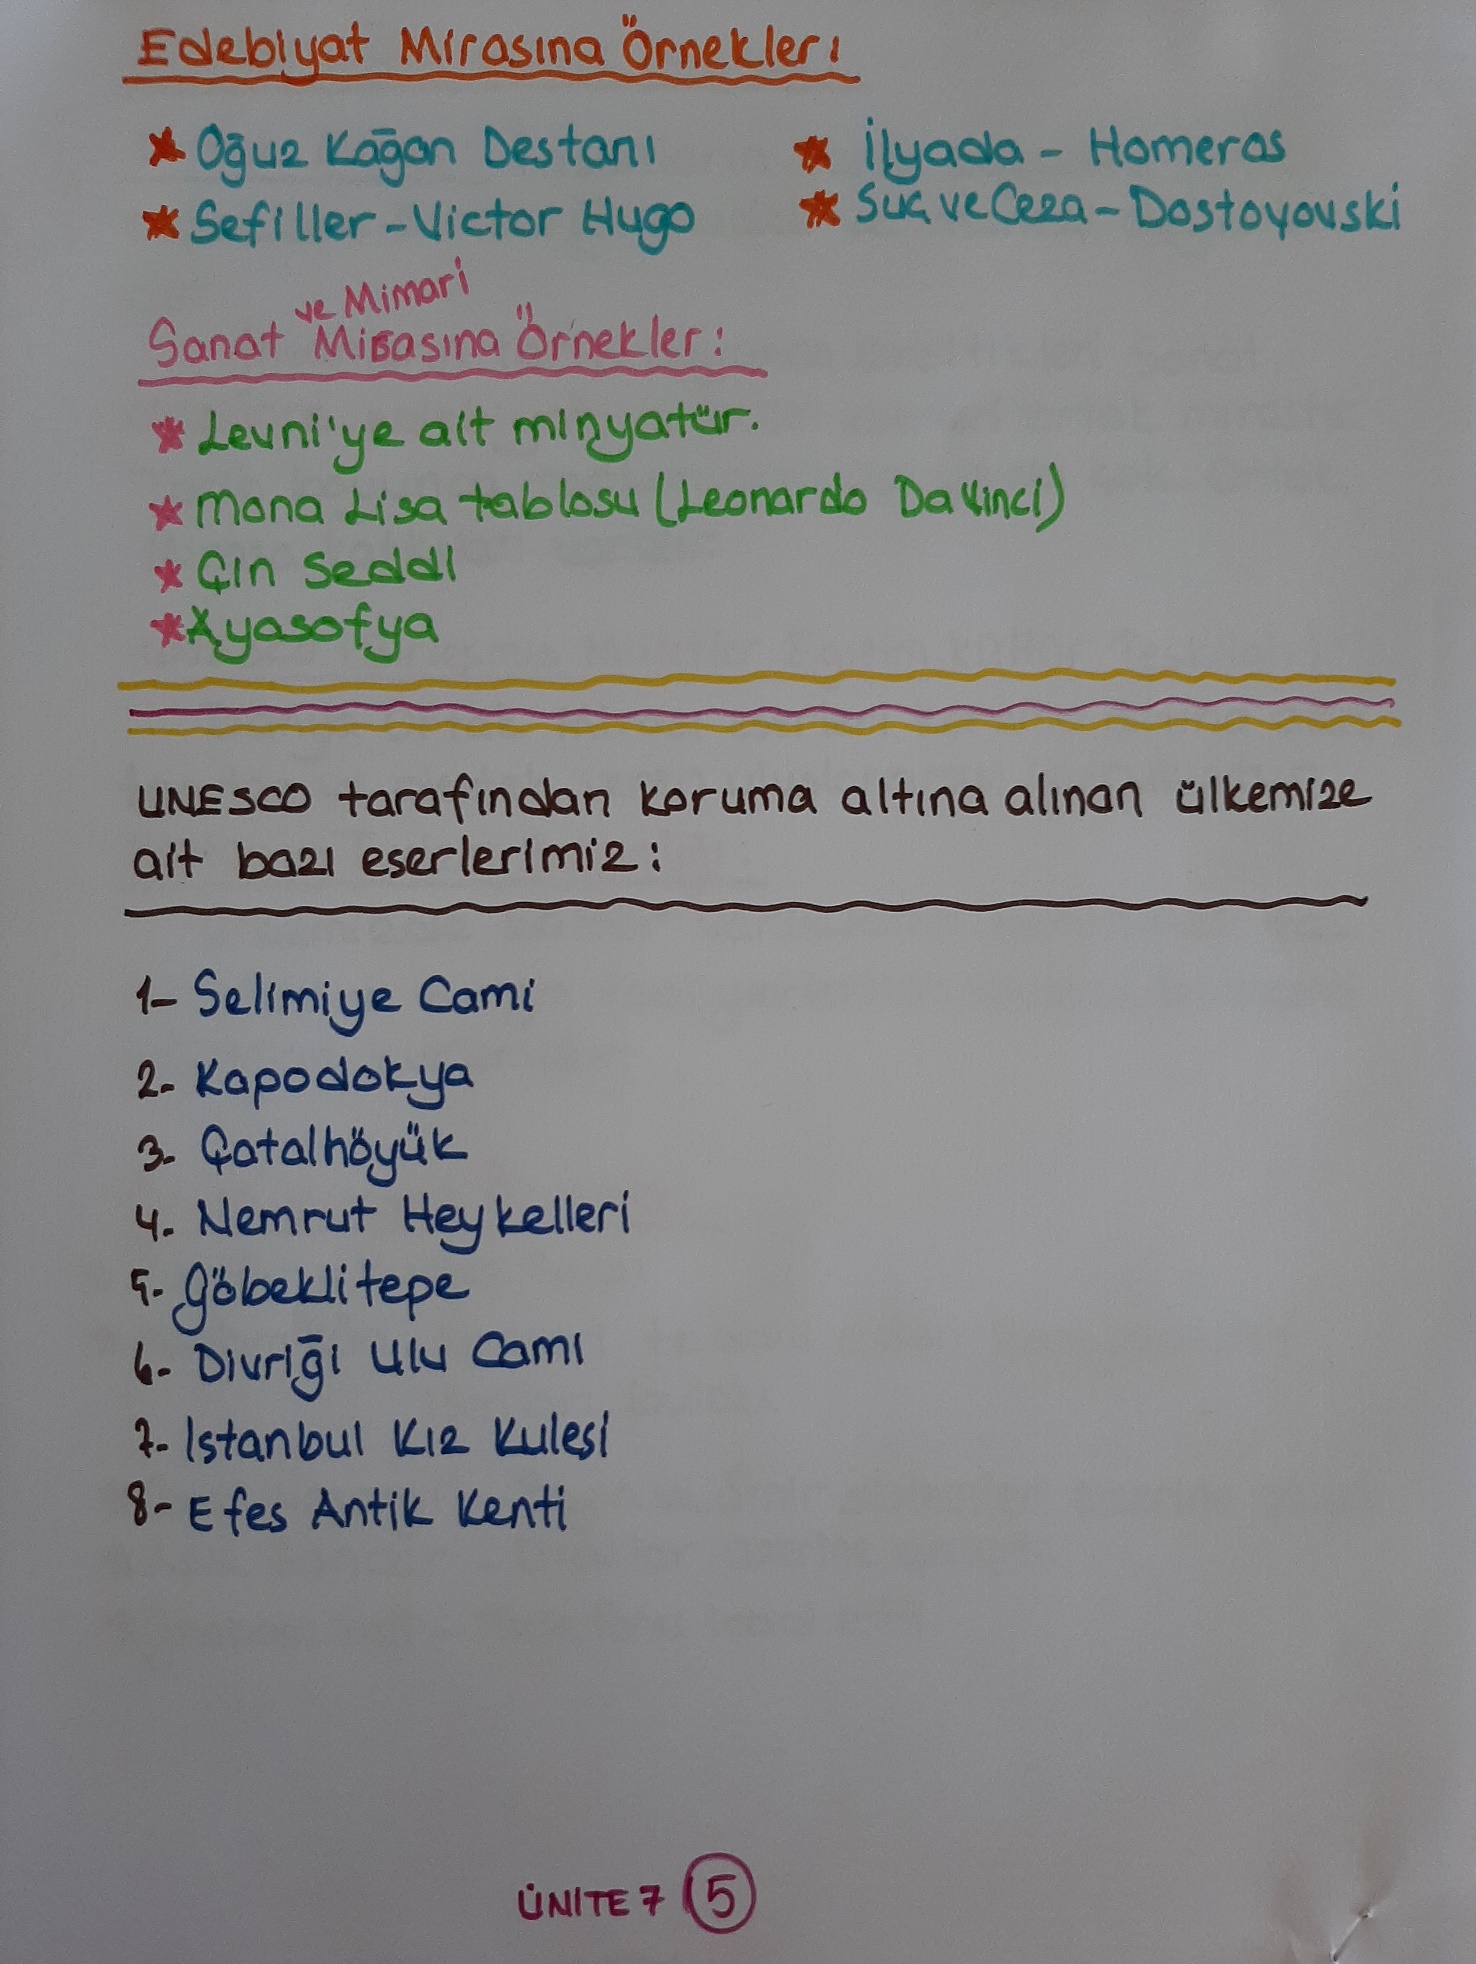 Edebiyat Mirasına Örnekler:
★ Oğuz Kağan Destanı
★ İlyada - Homeros
★ Sefiller - Victor Hugo
★ Suç ve Ceza - Dostoyovski
Sanat ve Mimari Mirasına Örnekler:
★ Levni'ye ait minyatür.
★ Mona Lisa tablosu (Leonardo Da Vinci)
★ Çin Seddi
★ Ayasofya
UNESCO tarafından koruma altına alınan ülkemize
ait bazı eserlerimiz:
1- Selimiye Cami
2- Kapodokya
3- Çatalhöyük
4- Nemrut Heykelleri
5- Göbeklitepe
6- Divriği Ulu Cami
7- Istanbul Kız Kulesi
8- Efes Antik Kenti
ÜNITE 7 5